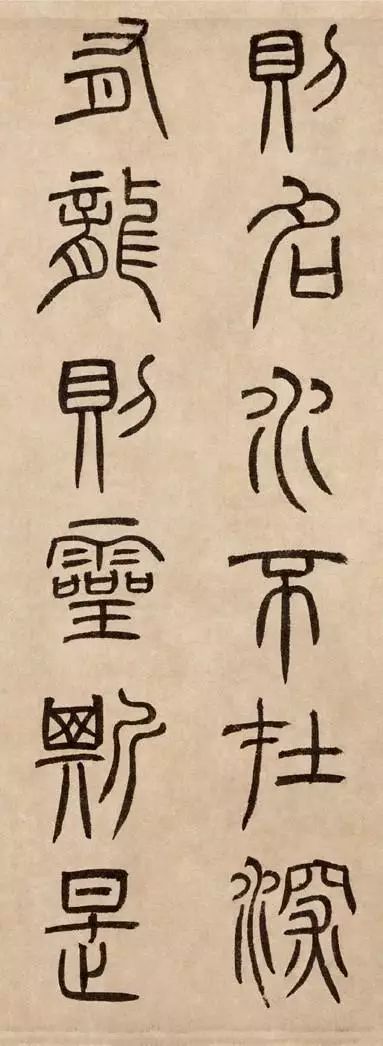 則名水不在深
有龍則靈斯是